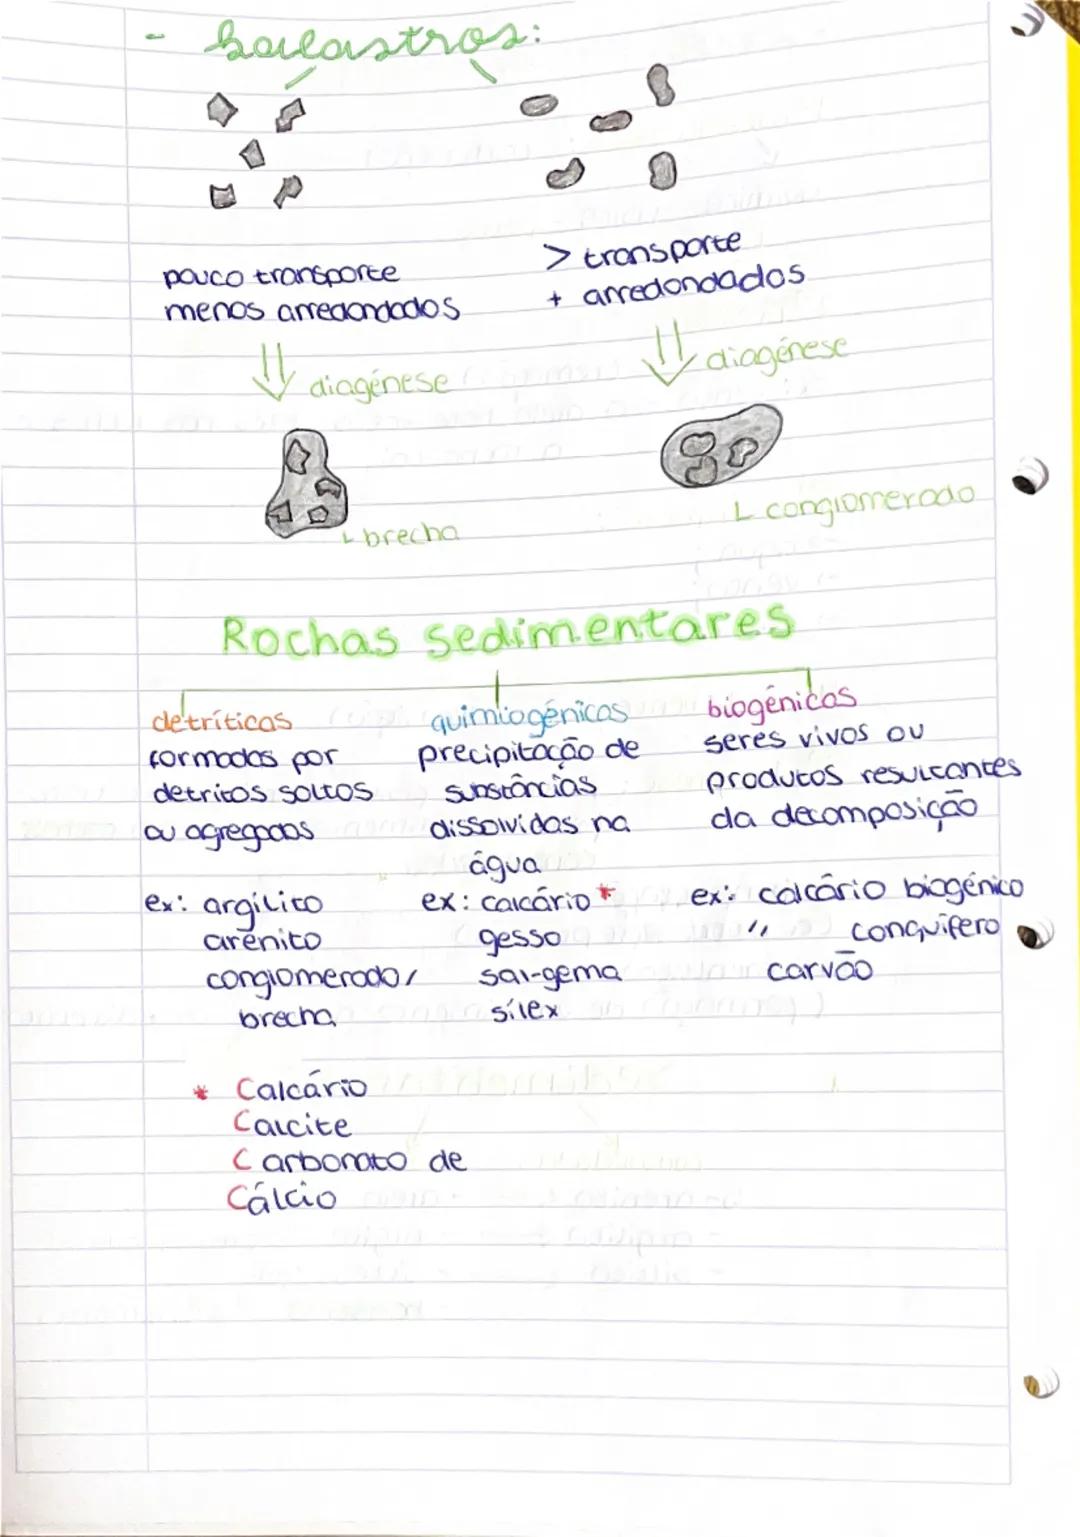 - balastros:
pouco transporte
menos arredondados
> transporte
+ arredondados
diagénese
diagénese
brecha
conglomerado
Rochas sedimentares
detríticas
formadas por
detritos soltos
ou agregados
ex: argilito
arenito
conglomerado/
brecha
quimiogénicas
precipitação de
substâncias
dissolvidas na
água
ex: calcário *
gesso
sal-gema
sílex
biogénicas
seres vivos ou
produtos resultantes
da decomposição
ex: calcário biogénico
" conquífero
carvão
* Calcário
Calcite
Carbonato de
Cálcio